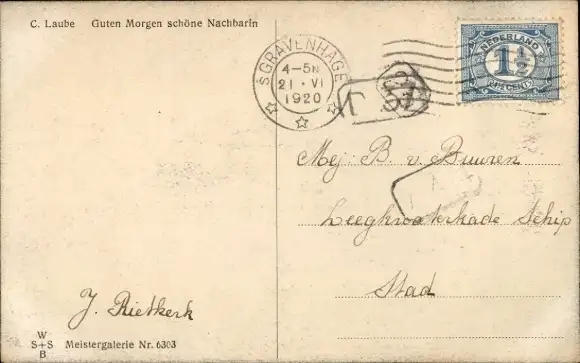 C. Laube Guten Morgen schöne Nachbarin
'SGRAVENHAGE
4-5N
21 · VI
1920
NEDERLAND
1½
CENT
Mej. B. v. Buuren
Leeghwaterkade Schip
Stad
J. Rietkerk
W
S+S
B
Meistergalerie Nr. 6303